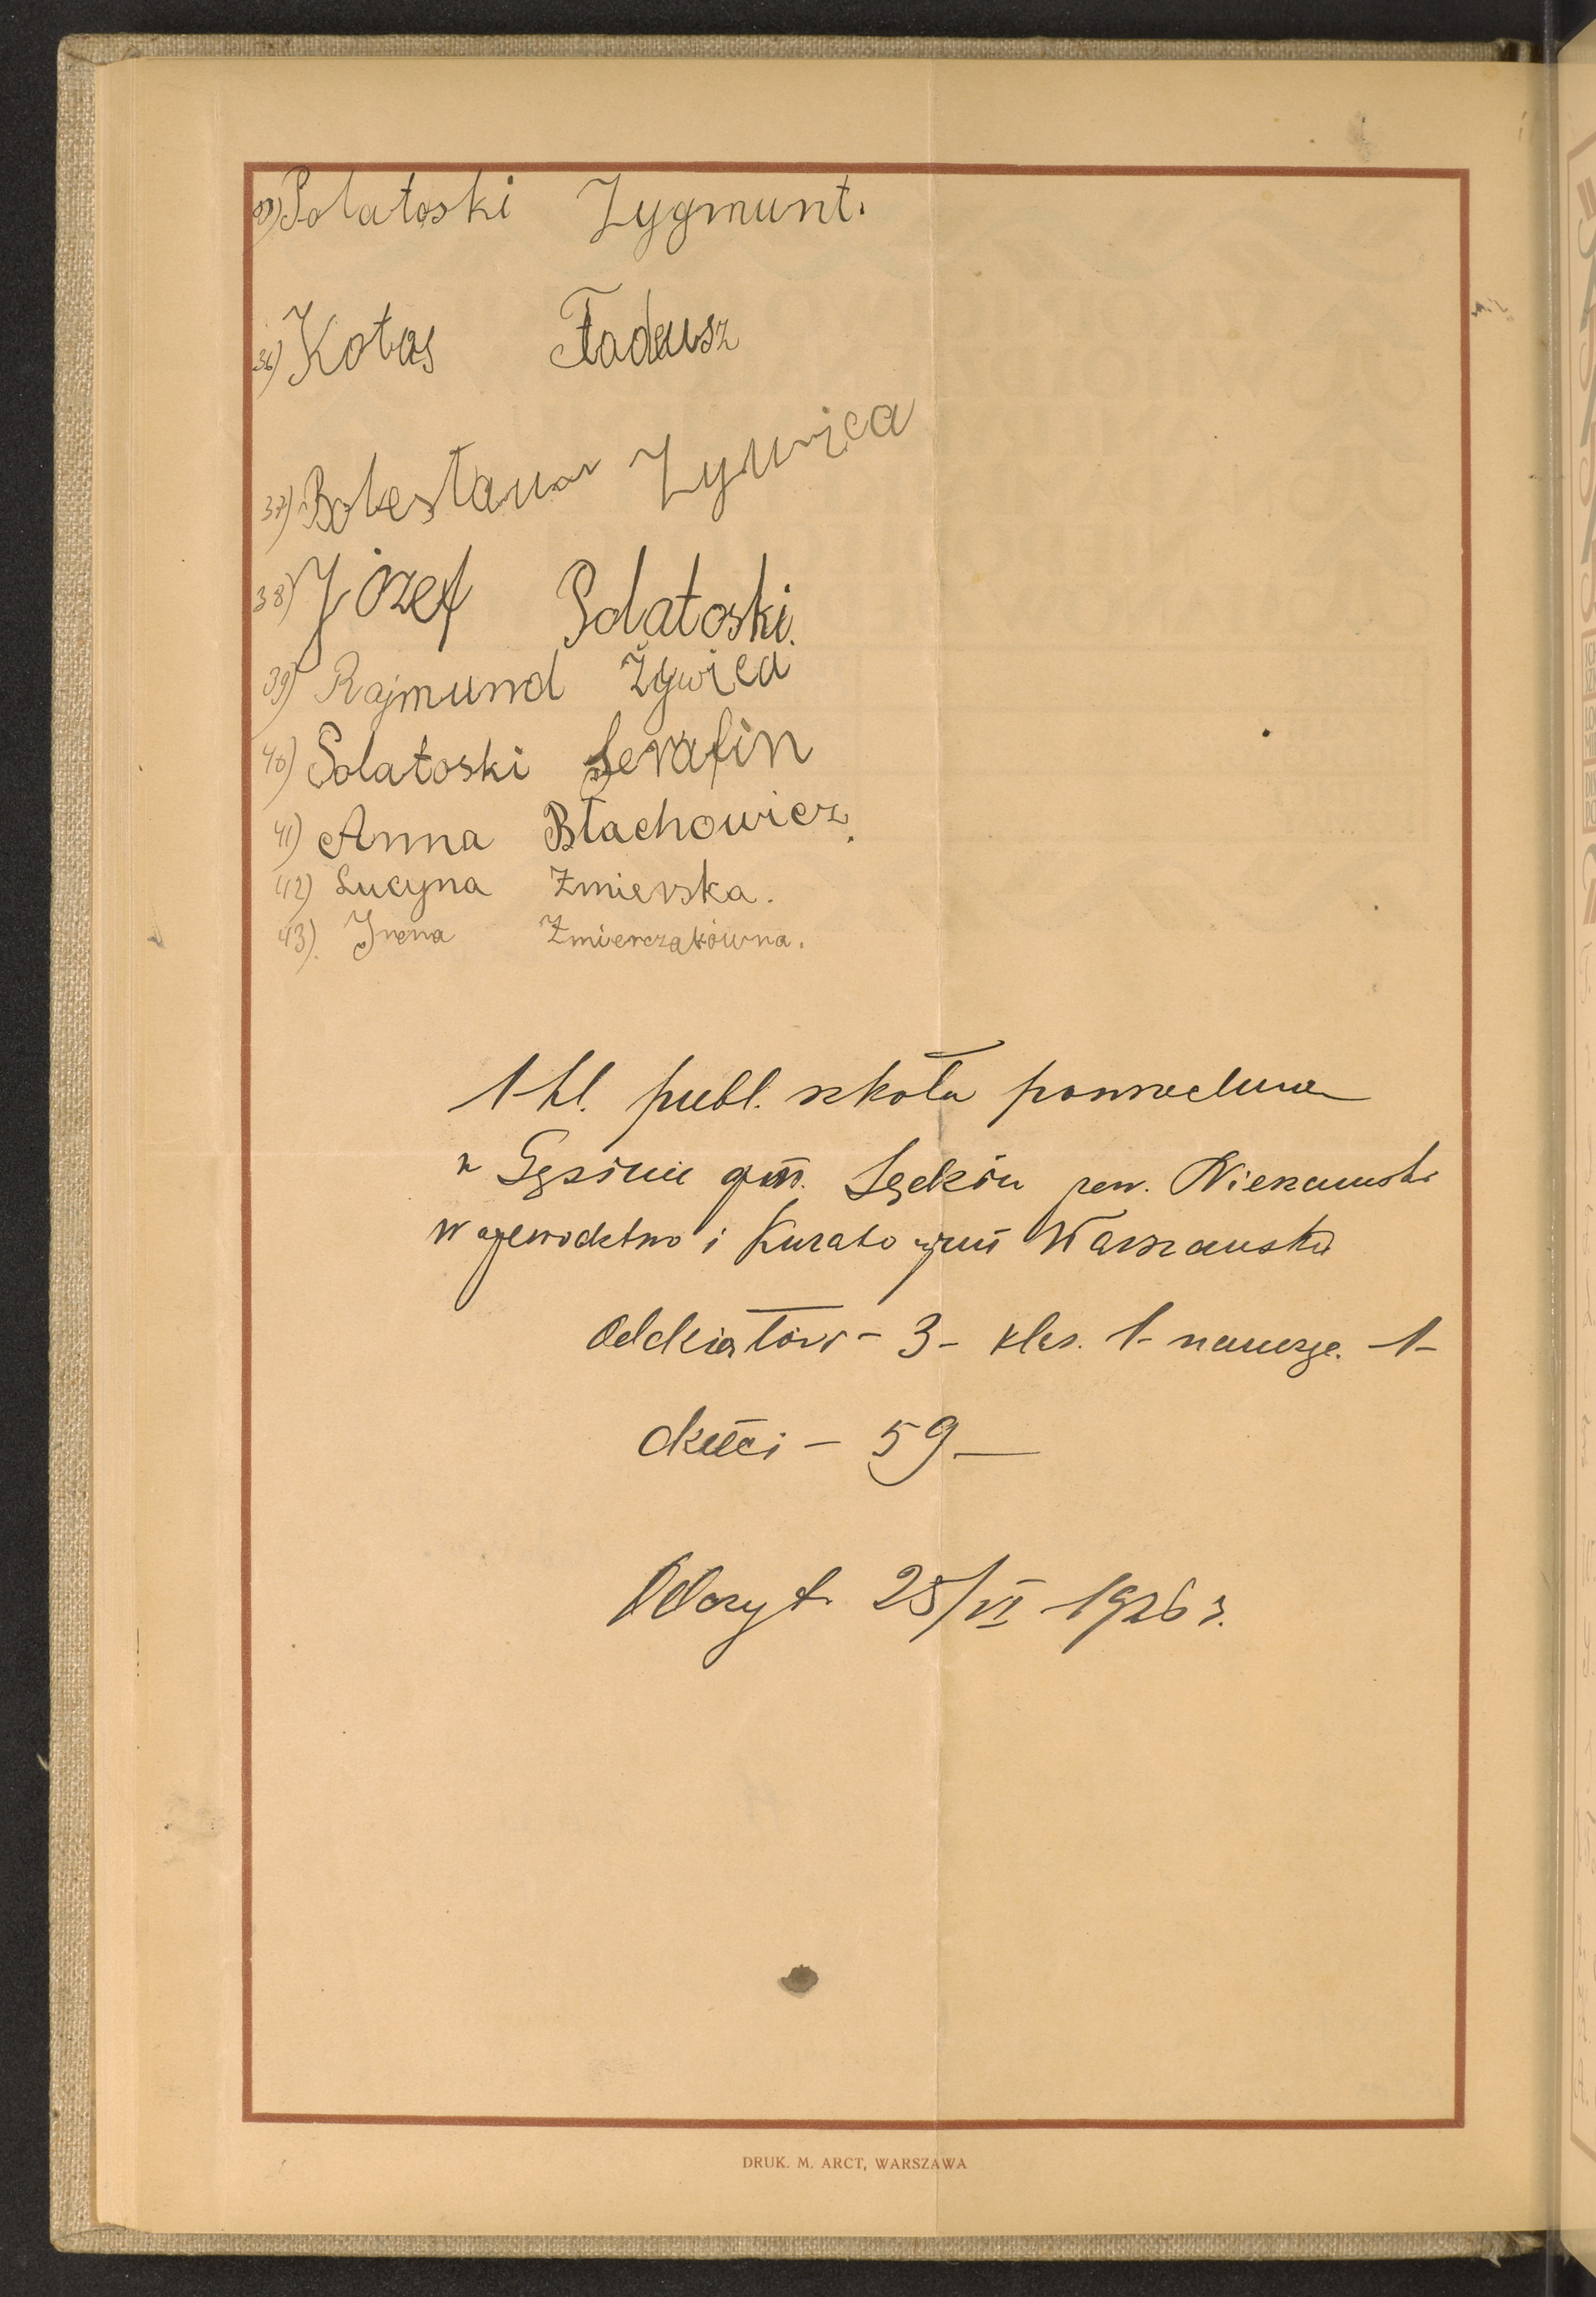 35) Polatoski Zygmunt.
36) Kotas Tadeusz
37) Bolesław Zywica
38) Józef Polatoski.
39) Rajmund Żywica
40) Polatoski Serafin
41) Anna Błachowicz.
42) Lucyna Żmierska.
43). Irena Żmierczakówna.
1 kl. publ. szkoła powszechna
w Gęsinie gm. Sędzin pow. Nieszawski
Wojewodztwo i Kuratorjum Warszawskie
Oddziałów - 3 - klas. 1 - naucz. - 1 -
dzieci - 59 -
25/VI 1926 r.
DRUK. M. ARCT, WARSZAWA